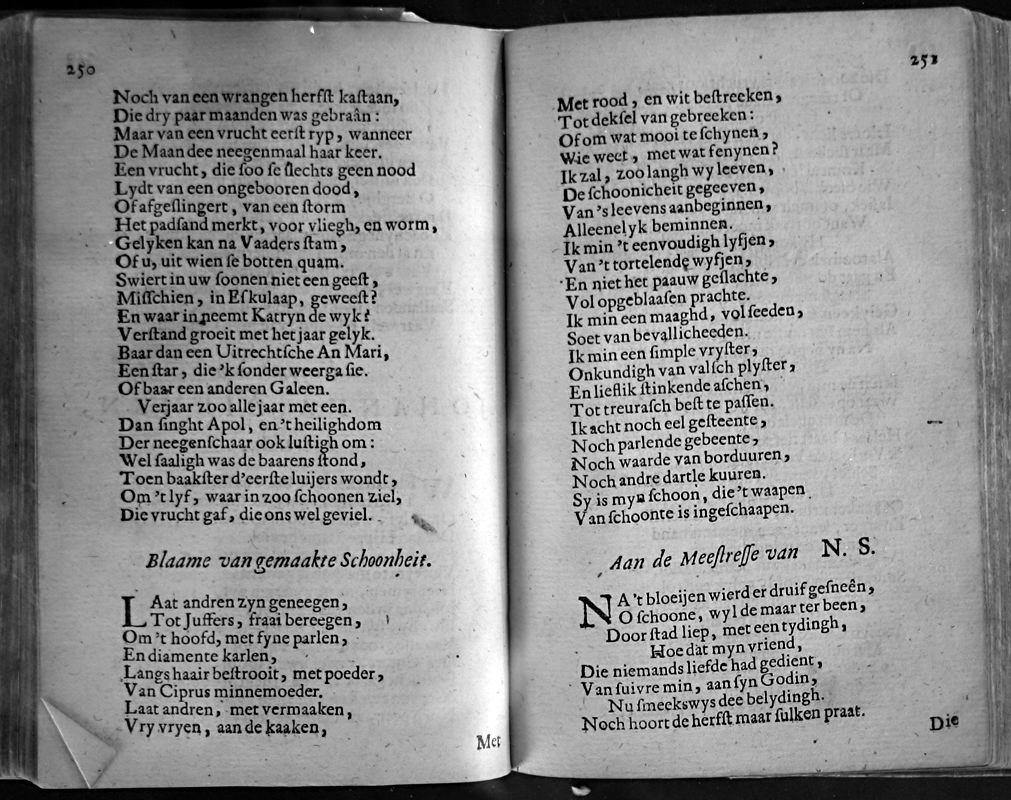 250
Noch van een wrangen herfſt kaſtaan,
Die dry paar maanden was gebraân:
Maar van een vrucht eerſt ryp, wanneer
De Maan dee neegenmaal haar keer.
Een vrucht, die ſoo ſe ſlechts geen nood
Lydt van een ongebooren dood,
Of afgeſlingert, van een ſtorm
Het padſand merkt, voor vliegh, en worm,
Gelyken kan na Vaaders ſtam,
Of u, uit wien ſe botten quam.
Swiert in uw ſoonen niet een geeſt,
Miſſchien, in Eſkulaap, geweeſt?
En waar in neemt Katryn de wyk?
Verſtand groeit met het jaar gelyk.
Baar dan een Uitrechtſche An Mari,
Een ſtar, die 'k ſonder weerga ſie.
Of baar een anderen Galeen.
Verjaar zoo alle jaar met een.
Dan ſinght Apol, en 't heilighdom
Der neegenſchaar ook luſtigh om:
Wel ſaaligh was de baarens ſtond,
Toen baakſter d'eerſte luijers wondt,
Om 't lyf, waar in zoo ſchoonen ziel,
Die vrucht gaf, die ons wel geviel.
Blaame van gemaakte Schoonheit.
LAat andren zyn geneegen,
Tot Juffers, fraai bereegen,
Om 't hoofd, met fyne parlen,
En diamente karlen,
Langs haair beſtrooit, met poeder,
Van Ciprus minnemoeder.
Laat andren, met vermaaken,
Vry vryen, aan de kaaken,
Met
251
Met rood, en wit beſtreeken,
Tot dekſel van gebreeken:
Of om wat mooi te ſchynen,
Wie weet, met wat fenynen?
Ik zal, zoo langh wy leeven,
De ſchoonicheit gegeeven,
Van 's leevens aanbeginnen,
Alleenelyk beminnen.
Ik min 't eenvoudigh lyfjen,
Van 't tortelende wyfjen,
En niet het paauw geſlachte,
Vol opgeblaaſen prachte.
Ik min een maaghd, vol ſeeden,
Soet van bevallicheeden.
Ik min een ſimple vryſter,
Onkundigh van valſch plyſter,
En lieſlik ſtinkende aſchen,
Tot treuraſch beſt te paſſen.
Ik acht noch eel geſteente,
Noch parlende gebeente,
Noch waarde van borduuren,
Noch andre dartle kuuren.
Sy is myn ſchoon, die 't waapen
Van ſchoonte is ingeſchaapen.
Aan de Meeſtreſſe van N. S.
NA 't bloeijen wierd er druif geſneên,
O ſchoone, wyl de maar ter been,
Door ſtad liep, met een tydingh,
Hoe dat myn vriend,
Die niemands liefde had gedient,
Van ſuivre min, aan ſyn Godin,
Nu ſmeekswys dee belydingh.
Noch hoort de herfſt maar ſulken praat.
Die